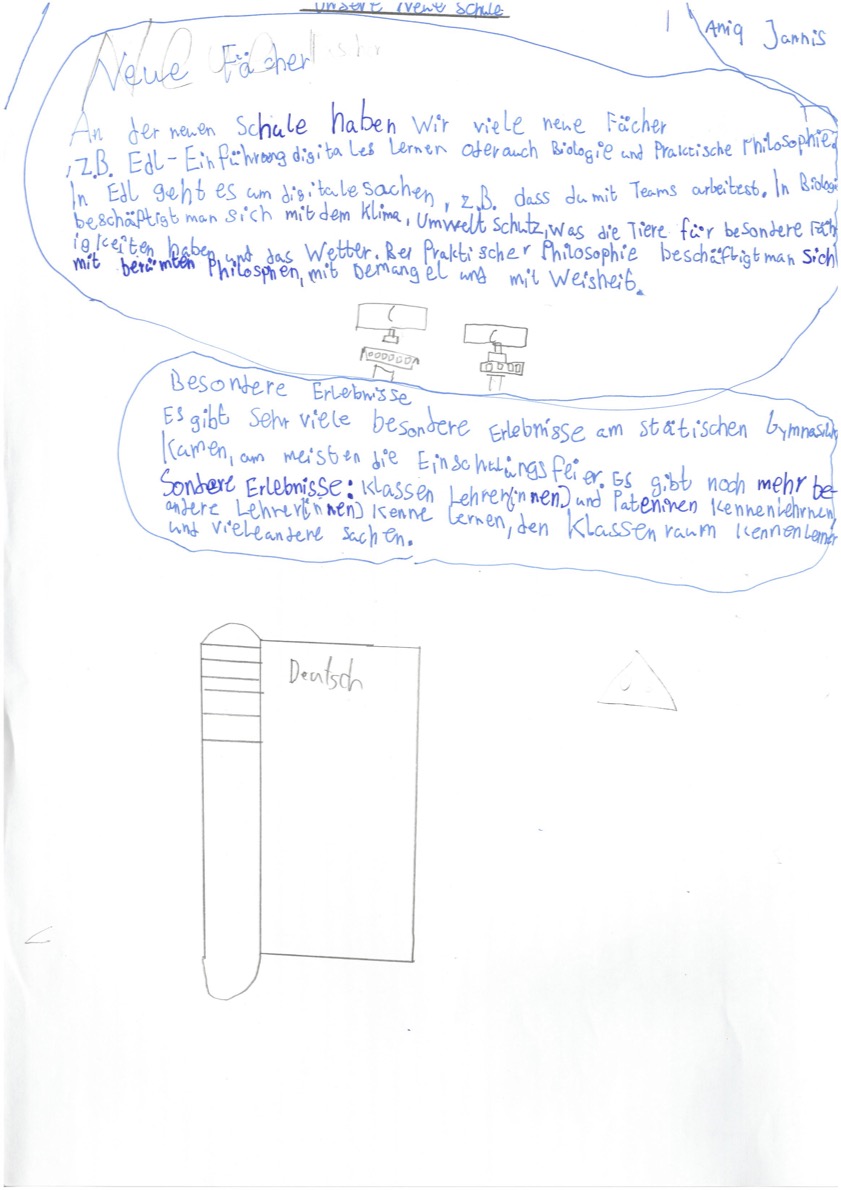 Unsere neue Schule
Aniq Jannis
Neue Fächer
An der neuen Schule haben Wir viele neue Fächer
, z.B. Edl-Einführung digitales Lernen oter auch Biologie und Praktische Philosophie.
In Edl geht es um digitale sachen, z.B. dass du mit Teams arbeitest. In Biologi
beschäftigt man sich mit dem Klima, Umwelt Schutz, was die Tiere für besondere Fäh
igkeiten haben und das Wetter. Bei Praktischer Philosophie beschäftigt man sich
mit berümten Philosphen, mit Demangel und mit Weisheit.
Besondere Erlebnisse
Es gibt Sehr viele besondere Erlebnisse am stätischen Gymnasium
Kamen, am meisten die Einschulungsfeier. Es gibt noch mehr be-
Sondere Erlebnisse: Klassen Lehrer(innen) und Pateninen Kennenlehrnen,
andere Lehrer(innen) Kenne lernen, den Klassenraum Kennenlerner
und viele andere sachen.
Deutsch